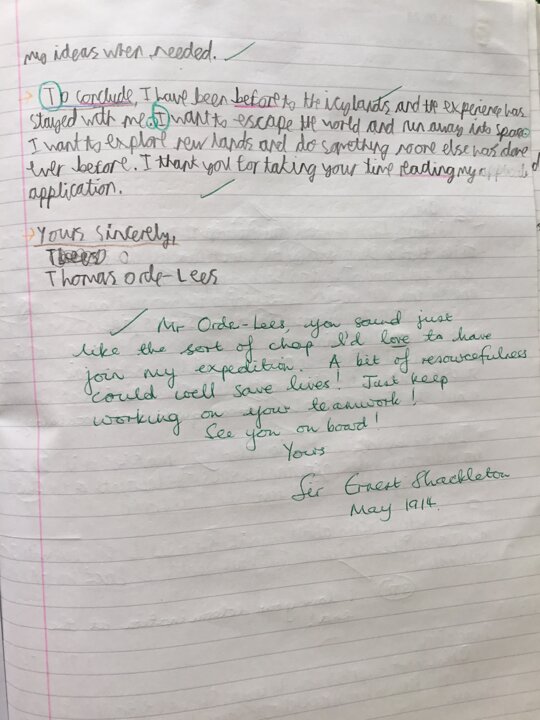 my ideas when needed.
To conclude, I have been before to the icy lands and the experience has
stayed with me. I want to escape the world and run away into space.
I want to explore new lands and do something noone else has done
ever before. I thank you for taking your time reading my
application.
Yours sincerely,
Thomas Orde-Lees
Mr Orde-Lees, you sound just
like the sort of chap I'd love to have
join my expedition. A bit of resourcefulness
could well save lives! Just keep
working on your teamwork!
See you on board!
Yours
Sir Ernest Shackleton
May 1914.